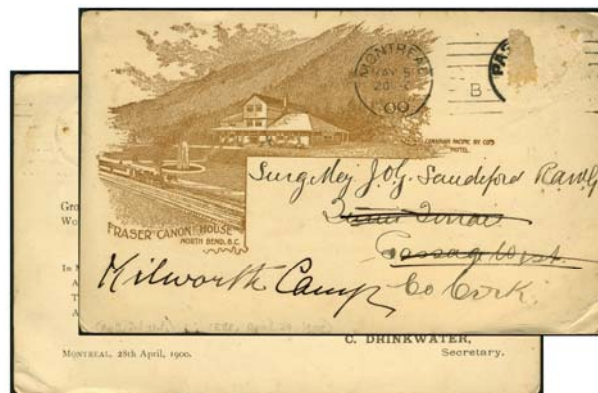 MONTREAL
MAY 5
00
B
PA
CANADIAN PACIFIC RY CO'S
HOTEL
FRASER CANON HOUSE
NORTH BEND, B.C.
Surg Maj J.O.G. Sandiford
Passage West
Kilworth Camp
Co Cork
Gro
Wo
In M
A
T
A
C. DRINKWATER,
Secretary.
MONTREAL, 28th April, 1900.